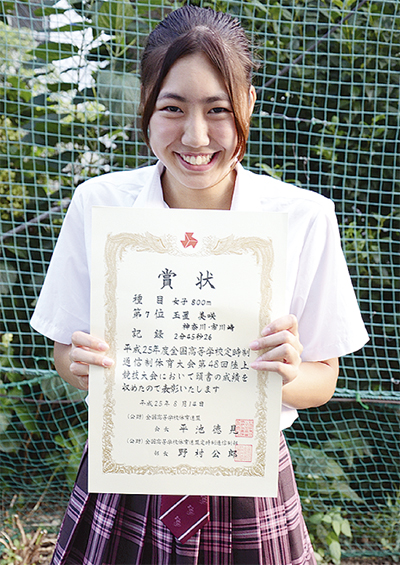 賞状
種目 女子800m
第7位 玉置 美咲
神奈川・市川崎
記録 2分45秒26
平成25年度全国高等学校定時制
通信制体育大会第48回陸上
競技大会において頭書の成績を
収めたので表彰いたします
平成25年8月14日
(公財)全国高等学校体育連盟
会長
(公財)全国高等学校体育連盟定時制通信制部
部長 野村公郎